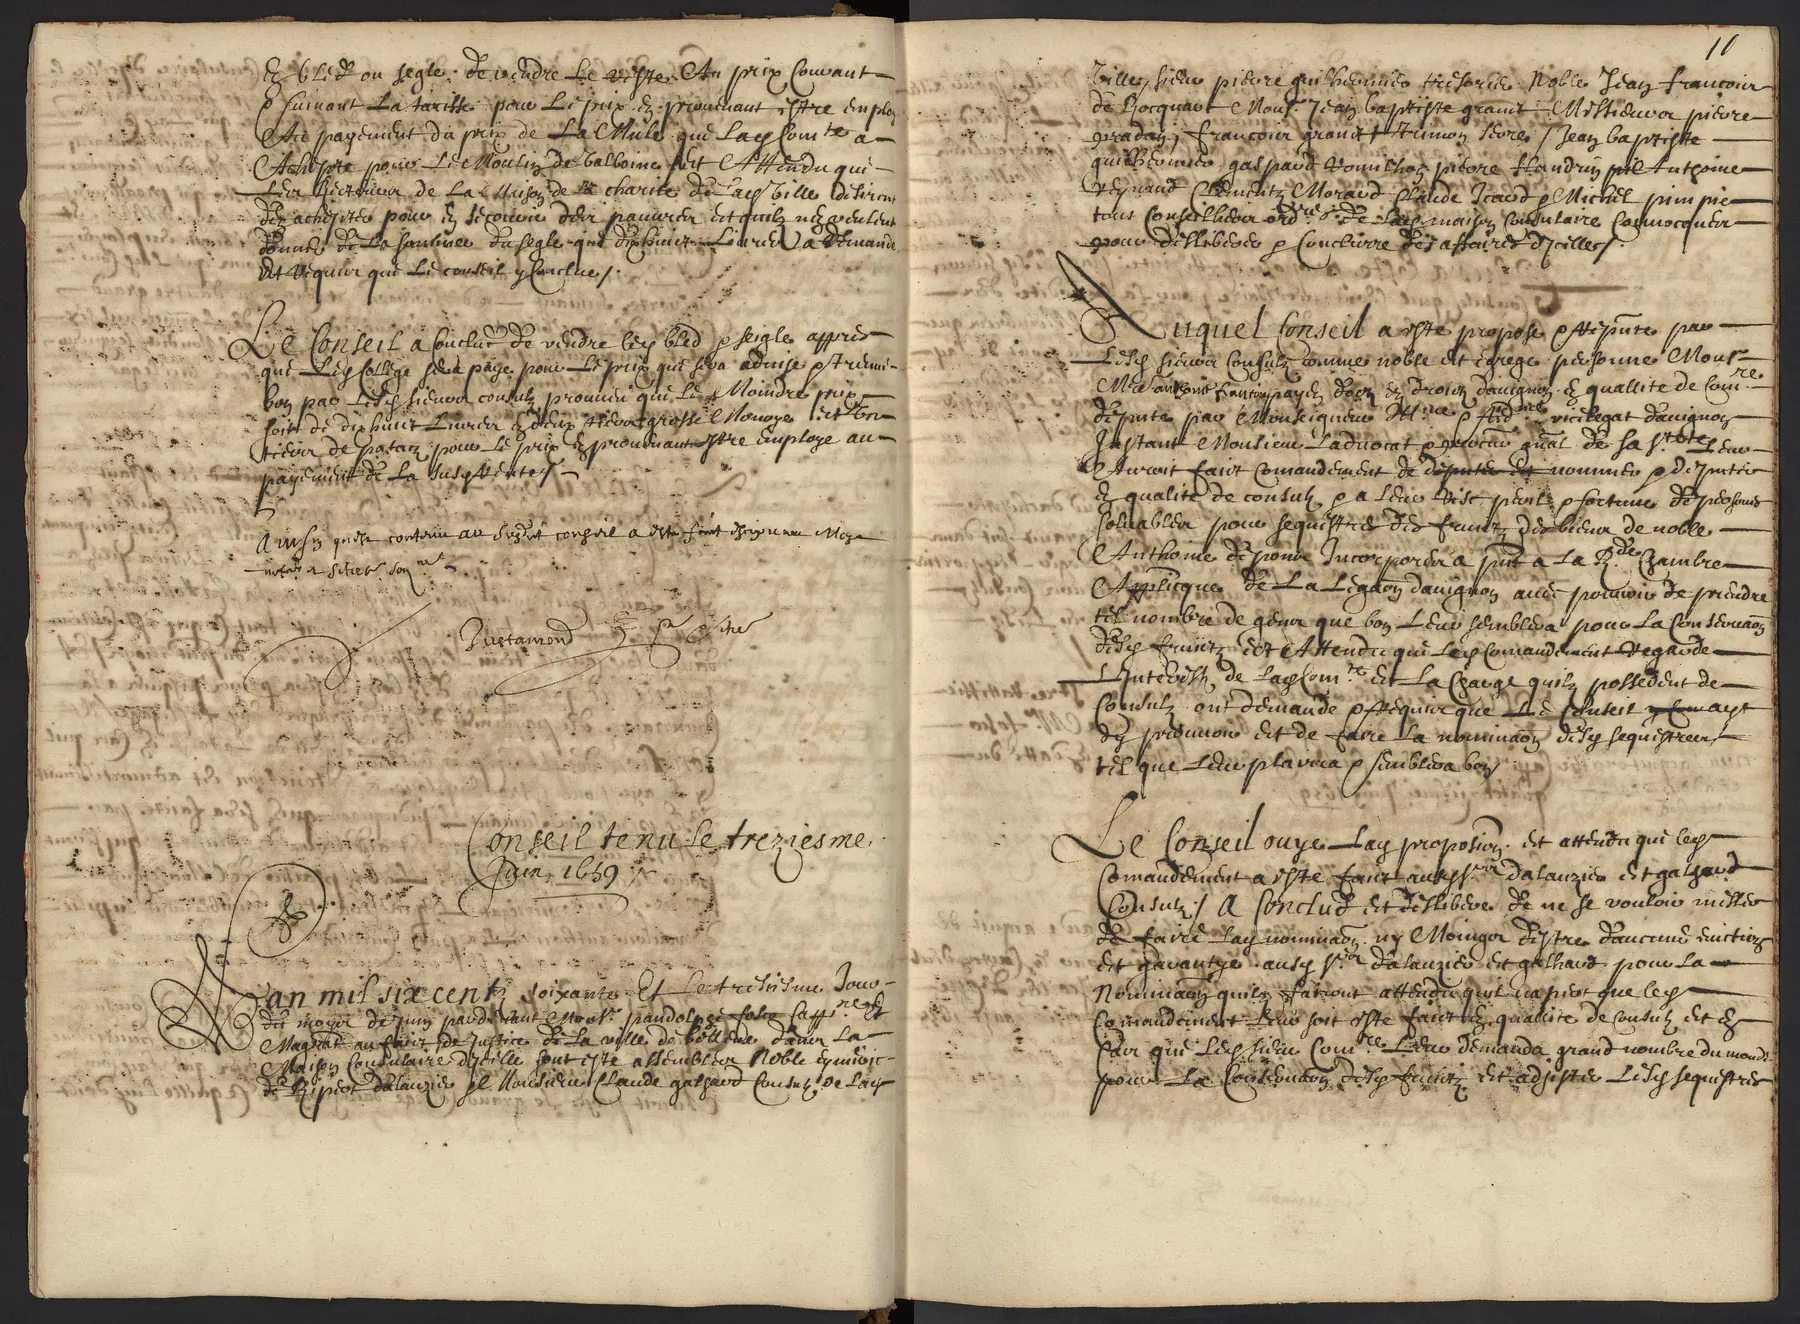 En bled ou segle de vendre le reste Au prix Courant
& suivant La tariffe pour Le prix En provenant estre employe
Au payement du prix de La Mule que Lad Com.te a
Achepte pour Le Moulin de Balboine Et Attendu que
Les Recteurs de La Maison de la charite de Lad Ville desirent
den achepter pour En secourir des pauvres et quils n'en veulent
donner de La saulmee du segle que dixhuict Livres A demande
Et Requis que Le conseil y Conclue /.
Le Conseil a Conclud de vendre led bled & seigle appres
que Led College sera paye pour Le prix que sera advise & treuve
bon par Lesd sieurs consulz pourveu que Le Moindre prix
soit de dixhuict Livres En deux tiers grosse Monoye Et Un
tiers de patatz pour Le prix En provenant estre Employe au
payement de La susd
Ainsin quest contenu au susdit conseil a este soubsigne Moy
not.re & secret.re soub.ne
Conseil tenu le treziesme
Juin 1659
L'an mil six centz soixante Et Le tresiesme Jour
du moys de Juin pardevant Mons.r pandolphe Capp.ne Et
Magistrat au faict de Justice de La ville de Bollene dans La
Maison Consulaire dicelle sont este assembles Noble
de Ripert dalauzier & Monsieur Claude galhard Consulz de Lad
11
Ville, sieur pierre guilheomier tresorier Noble Jean francois
de Rocquard Mons.r Jean baptiste granet Messieurs pierre
pradan, francois granet Simon serre / Jean baptiste
guilheomier gaspard Vomilhon pierre flandrin Antoine
Reynaud Clementz Morard Claude Icard & Michel pimpie
tous Conseilliers ord.res de Lad maison Consulaire Convocques
pour deslibere & Conclurre des affaires dycelle /.
Auquel Conseil a este propose & represente par
Lesd sieurs Consulz comme noble Et egrege personne Mons.r
Me Antoine francois payen doct En droitz davignon En quallite de Com.re
depute par Monseigneur Ill.me & R.me vicelegat davignon
Instant Monsieur Ladvocat & procur gnal de sa S.tete Leur
Auroit faict Comandement de nommer & deputer
En qualite de consulz & a Leur Risc peril & fortune de personnes
solvables pour sequestres des fruictz des biens de noble
Anthoine Incorpores a joint a La R.de Chambre
Applicque de La Legaon davignon avec pouvoir de prendre
tel nombre de gens que bon Leur semblera pour La Conservaon
desd fruictz Et Attendu que Led Comandement Regarde
Linterestz de Lad Com.te Et La Charge quilz possedent de
Consulz ont demande & Requis que Le Conseil ayt
dy prouvoir Et de faire La nominaon desd sequestres
tel que Leur plairra & semblera bon /
Le Conseil ouye Lad proposion Et attendu que led
Comandement a este faict ausd s.rs dalauzier Et galhard
Consulz / A Conclud Et deslibere de ne se vouloir mesler
de faire Lad nominaon ny Moings destre daucune
Et garantye ausd s.rs dalauzier Et galhard pour La
Nominaon quilz fairont attendu quil napert que led
Comandement Leur soit este faict En qualite de Consulz Et En
Cas que Led sieur Com.re Leur demanda grand nombre du monde
pour La Conservaon desd fruictz Et adjister Lesd sequestres